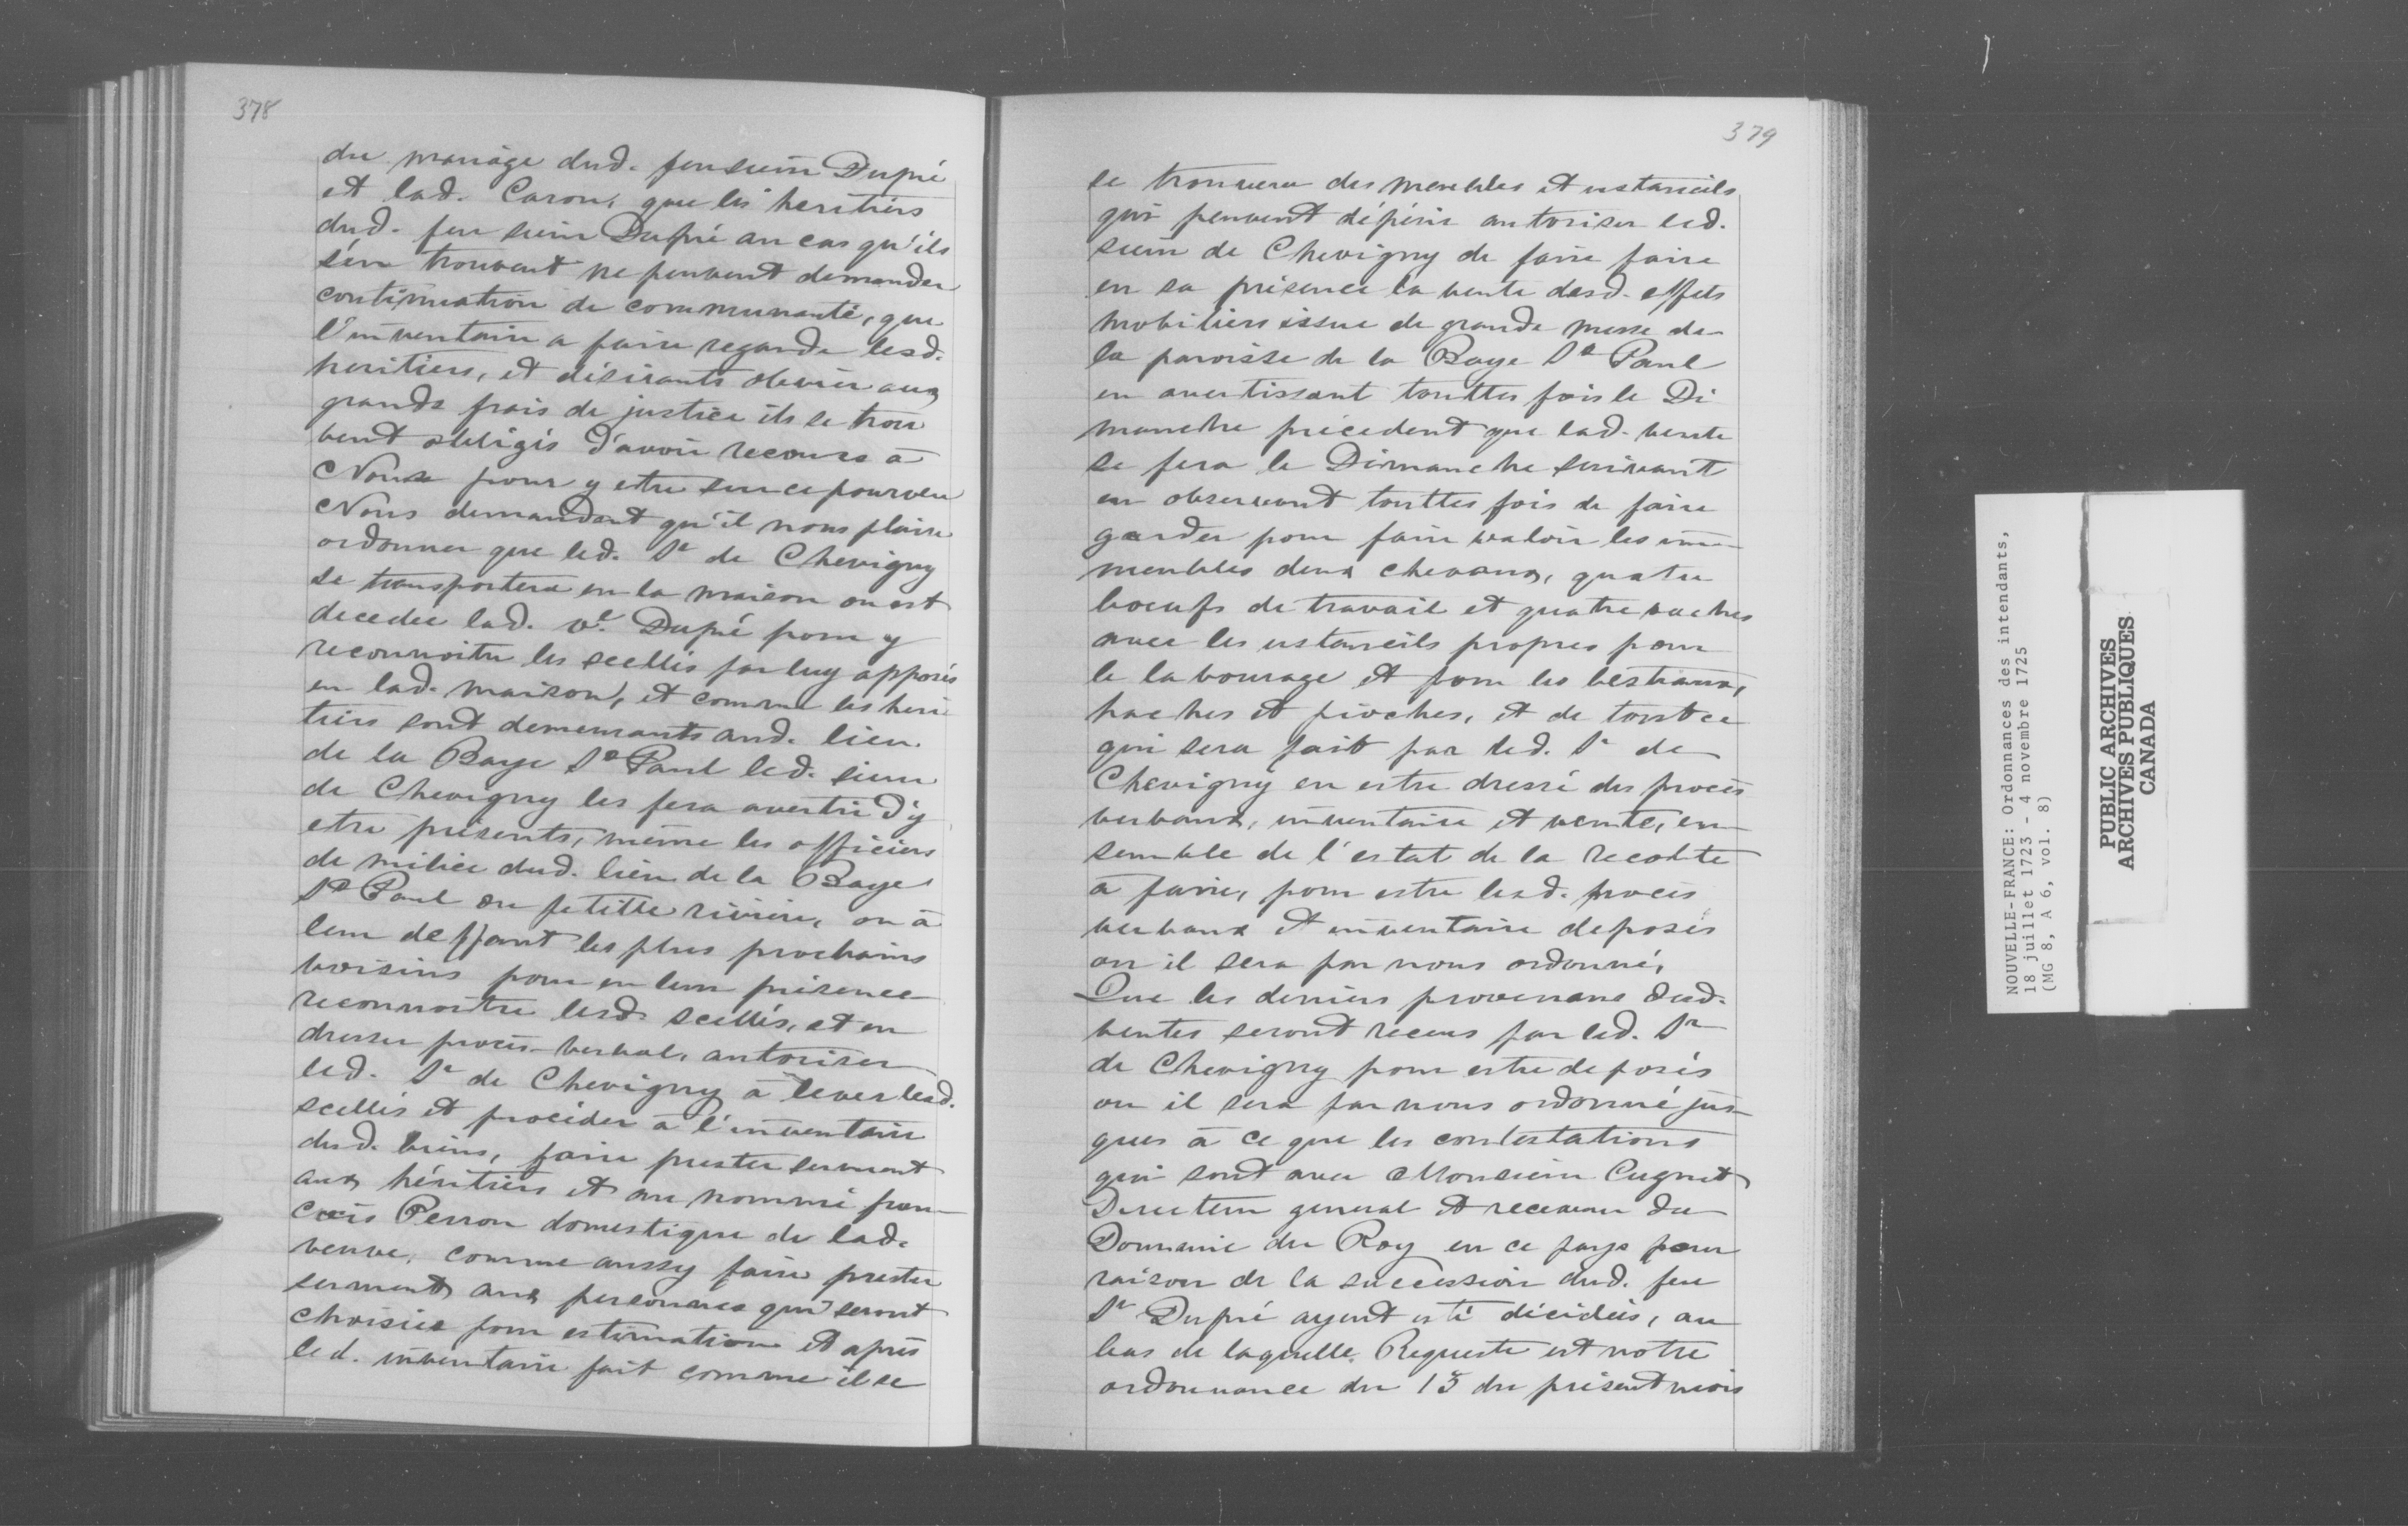 378
du mariage dud. feu sieur Dupré
et lad. Caron, que les heritiers
dud. feu sieur Dupré au cas qu'ils
s'en trouvent ne peuvent demander
continuation de communauté, que
l'inventaire a faire regarde lesd.
heritiers, et désirants obvier aux
grands frais de justice ils se trou
vent obligés d'avoir recours à
Nous pour y etre sur ce pourveu
Nous demandant qu'il nous plaise
ordonner que led. Sr de Chevigny
se transportera en la maison ou est
decedée lad. ve. Dupré pour y
reconnoitre les scellés par luy apposés
en lad. maison, et comme les heri
tiers sont demeurants aud. lieu
de la Baye St Paul led. sieur
de Chevigny les fera avertir d'y
etre présents, même les officiers
de milice dud. lieu de la Baye
St Paul ou petitte rivière, ou à
leur deffaut les plus prochains
voisins pour en leur présence
reconnoitre lesd. scellés, et en
dresser procès-verbal, autoriser
led. Sr de Chevigny à lever lesd.
scellés et procéder à l'inventaire
desd. biens, faire prester serment
aux héritiers et au nommé fran-
cois Perron domestique de lad.
veuve, comme aussy faire prester
serment aux personnes qui seront
choisies pour estimation et après
led. inventaire fait comme il se
379
se trouvera des meubles et ustancils
qui peuvent dépérir autoriser led.
sieur de Chevigny de faire faire
en sa présence la vente desd. effets
mobiliers issue de grande messe de
la paroisse de la Baye St Paul
en avertissant touttes fois le Di
manche précedent que lad. vente
se fera le Dimanche suivant
en observant touttes fois de faire
garder pour faire valoir les im-
meubles deux chevaux, quatre
boeufs de travail et quatre vaches
avec les ustancils propres pour
le labourage et pour les bestiaux,
haches et pioches, et de tout ce
qui sera fait par led. Sr de
Chevigny en estre dressé des procès
verbaux, inventaire et vente, en-
semble de l'estat de la recolte
à faire, pour estre lesd. procès
verbaux et inventaire deposés
ou il sera par nous ordonné,
Que les deniers provenans desd.
ventes seront receus par led. Sr
de Chevigny pour estre deposés
ou il sera par nous ordonné jus-
ques à ce que les contestations
qui sont avec Monsieur Cugnet
Directeur general et receveur du
Domaine du Roy en ce pays pour
raison de la succession dud. feu
Sr Dupré ayent esté décidées, au
bas de laquelle Requeste est notre
ordonnance du 15 du présent mois
NOUVELLE-FRANCE: Ordonnances des intendants,
18 juillet 1723 - 4 novembre 1725
(MG 8, A 6, vol. 8)
PUBLIC ARCHIVES
ARCHIVES PUBLIQUES
CANADA